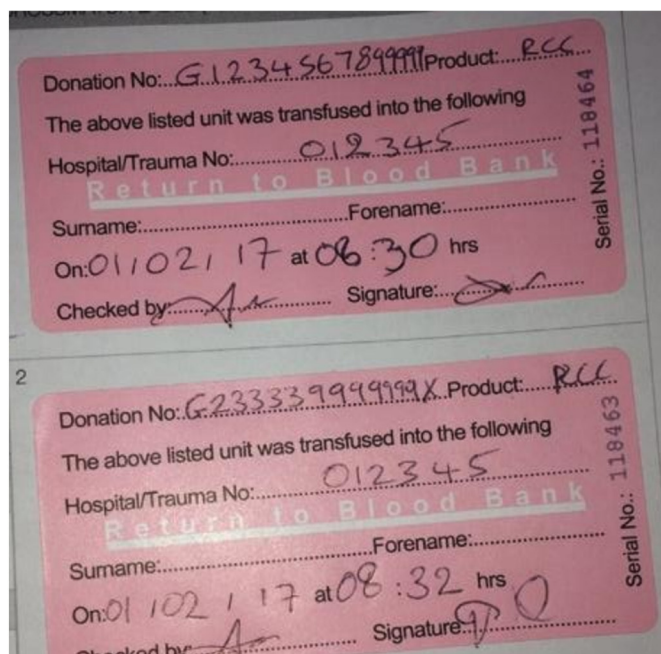 Donation No:..G12345678999991 Product:....RCC...
The above listed unit was transfused into the following
Hospital/Trauma No:..........012345..........
Return to Blood Bank
Surname:..............................Forename:......................
On:01/02/17 at 08:30 hrs
Checked by:.................. Signature:..................
Serial No.: 118464
2
Donation No:.G233339999999X.Product:....RCC
The above listed unit was transfused into the following
Hospital/Trauma No:..........012345..........
Return to Blood Bank
Surname:..............................Forename:......................
On:01/02/17 at 08:32 hrs
Checked by Signature:
Serial No.: 118463